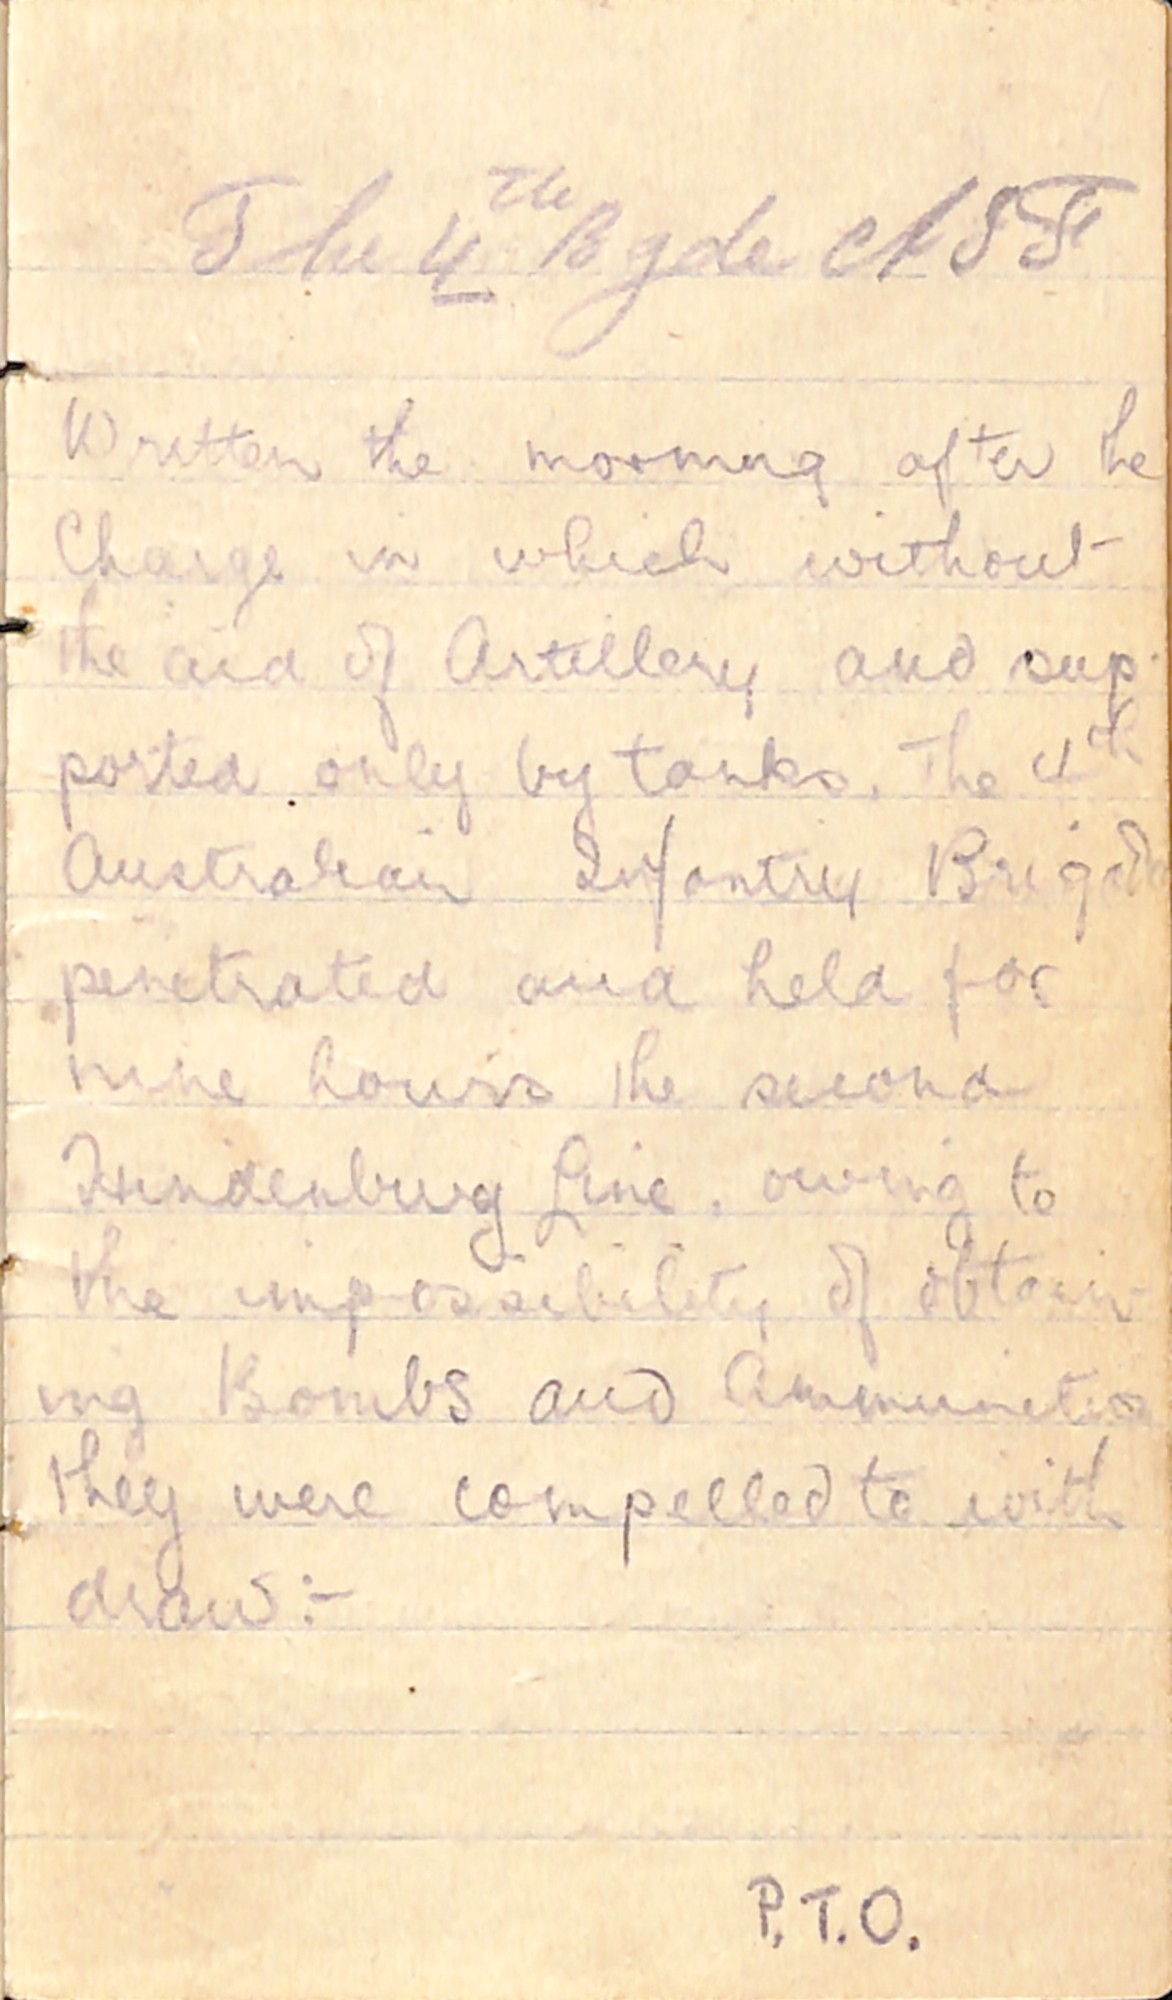 The 4th Bgde AIF
Written the morning after the
Charge in which without
the aid of Artillery and sup
ported only by tanks. The 4th
Australian Infantry Brigade
penetrated and held for
nine hours the second
Hindenburg Line. owing to
the impossibility of obtain
ing Bombs and Ammunition
they were compelled to with
draw :-
P.T.O.